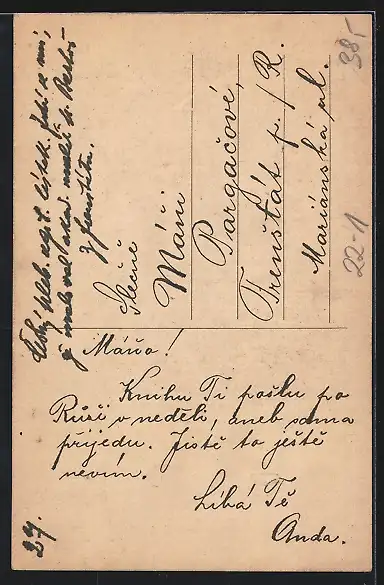 Slečně
Máři
Pargačové,
Frenštát p./R.
Mariánská ul.
Máňo!
Knihu Ti pošlu po
Růži v neděli, aneb sama
přijedu. Jistě to ještě
nevím.
Líbá Tě
Anda.
z Frenštátu.
27.
38,-
22-1